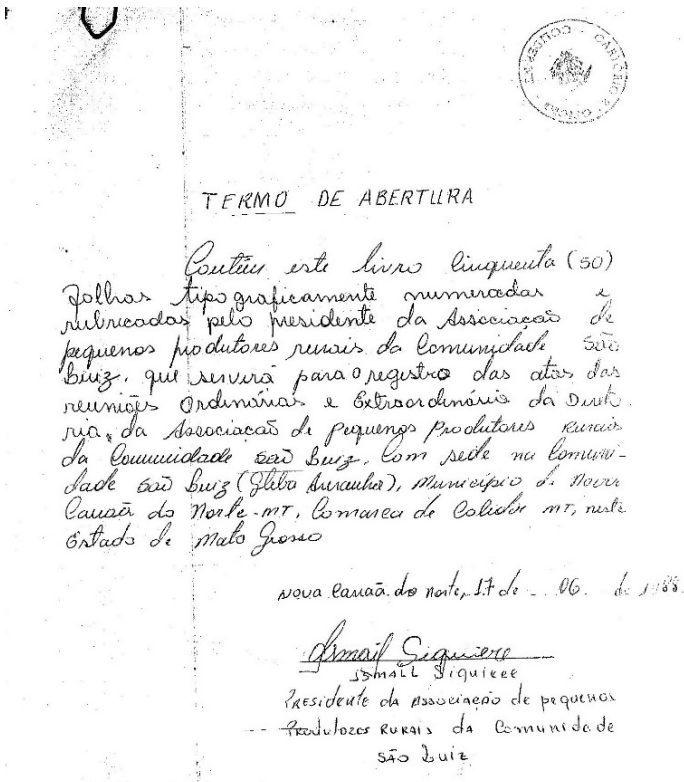 TERMO DE ABERTURA
Contém este livro Cinquenta (50)
folhas tipograficamente numeradas e
rubricadas pelo presidente da Associação de
pequenos produtores rurais da Comunidade São
Luiz, que servirá para o registro das atas das
reuniões Ordinárias e Extraordinária da Direto
ria, da Associação de Pequenos Produtores Rurais
da Comunidade São Luiz, Com sede na Comuni-
dade São Luiz (Gleba), Município de Nova
Canaã do Norte-MT, Comarca de Colider MT, neste
Estado de Mato Grosso
Nova Canaã do Norte, 17 de 06. de 1988.
Ismail Siquiere
ISMALL Siquiere
Presidente da Associação de pequenos
Produtores Rurais da Comunidade
São Luiz